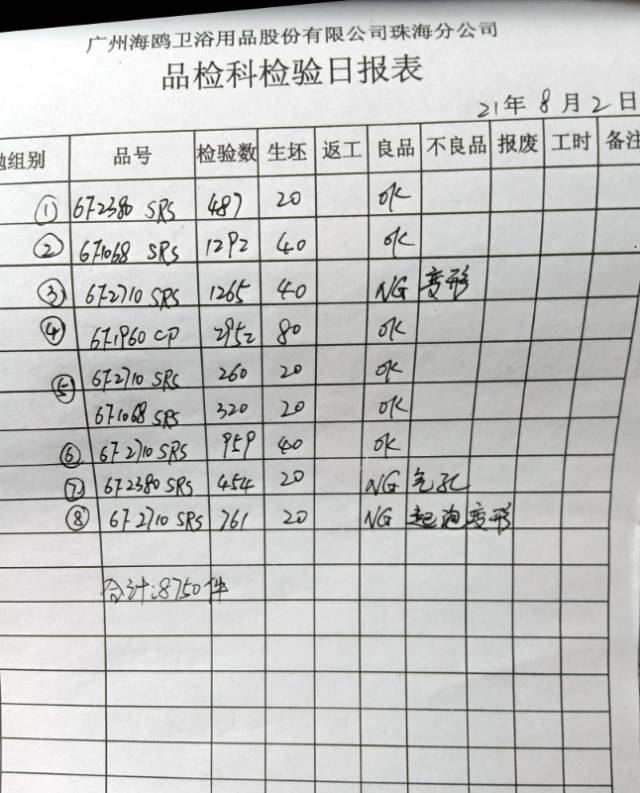 广州海鸥卫浴用品股份有限公司珠海分公司
品检科检验日报表
21年 8 月 2 日
组别 品号 检验数 生坯 返工 良品 不良品 报废 工时 备注
① 67.2380 SRS 487 20 OK
② 67.1068 SRS 1292 40 OK
③ 67.2710 SRS 1265 40 NG 变形
④ 67.1960 CP 2952 80 OK
⑤ 67.2710 SRS 260 20 OK
67.1068 SRS 320 20 OK
⑥ 67.2710 SRS 959 40 OK
⑦ 67.2380 SRS 454 20 NG 气孔
⑧ 67.2710 SRS 761 20 NG 起泡变形
合计:8750件